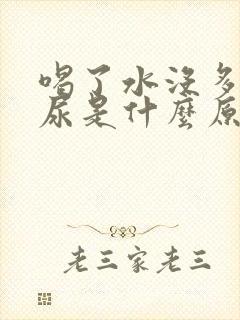 喝了水没多
尿是什麼原
老三家老三